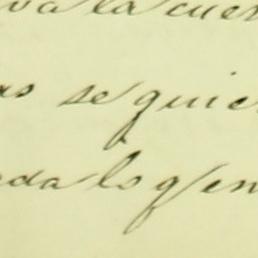 va la cuen
as se quie
ada lo q'en